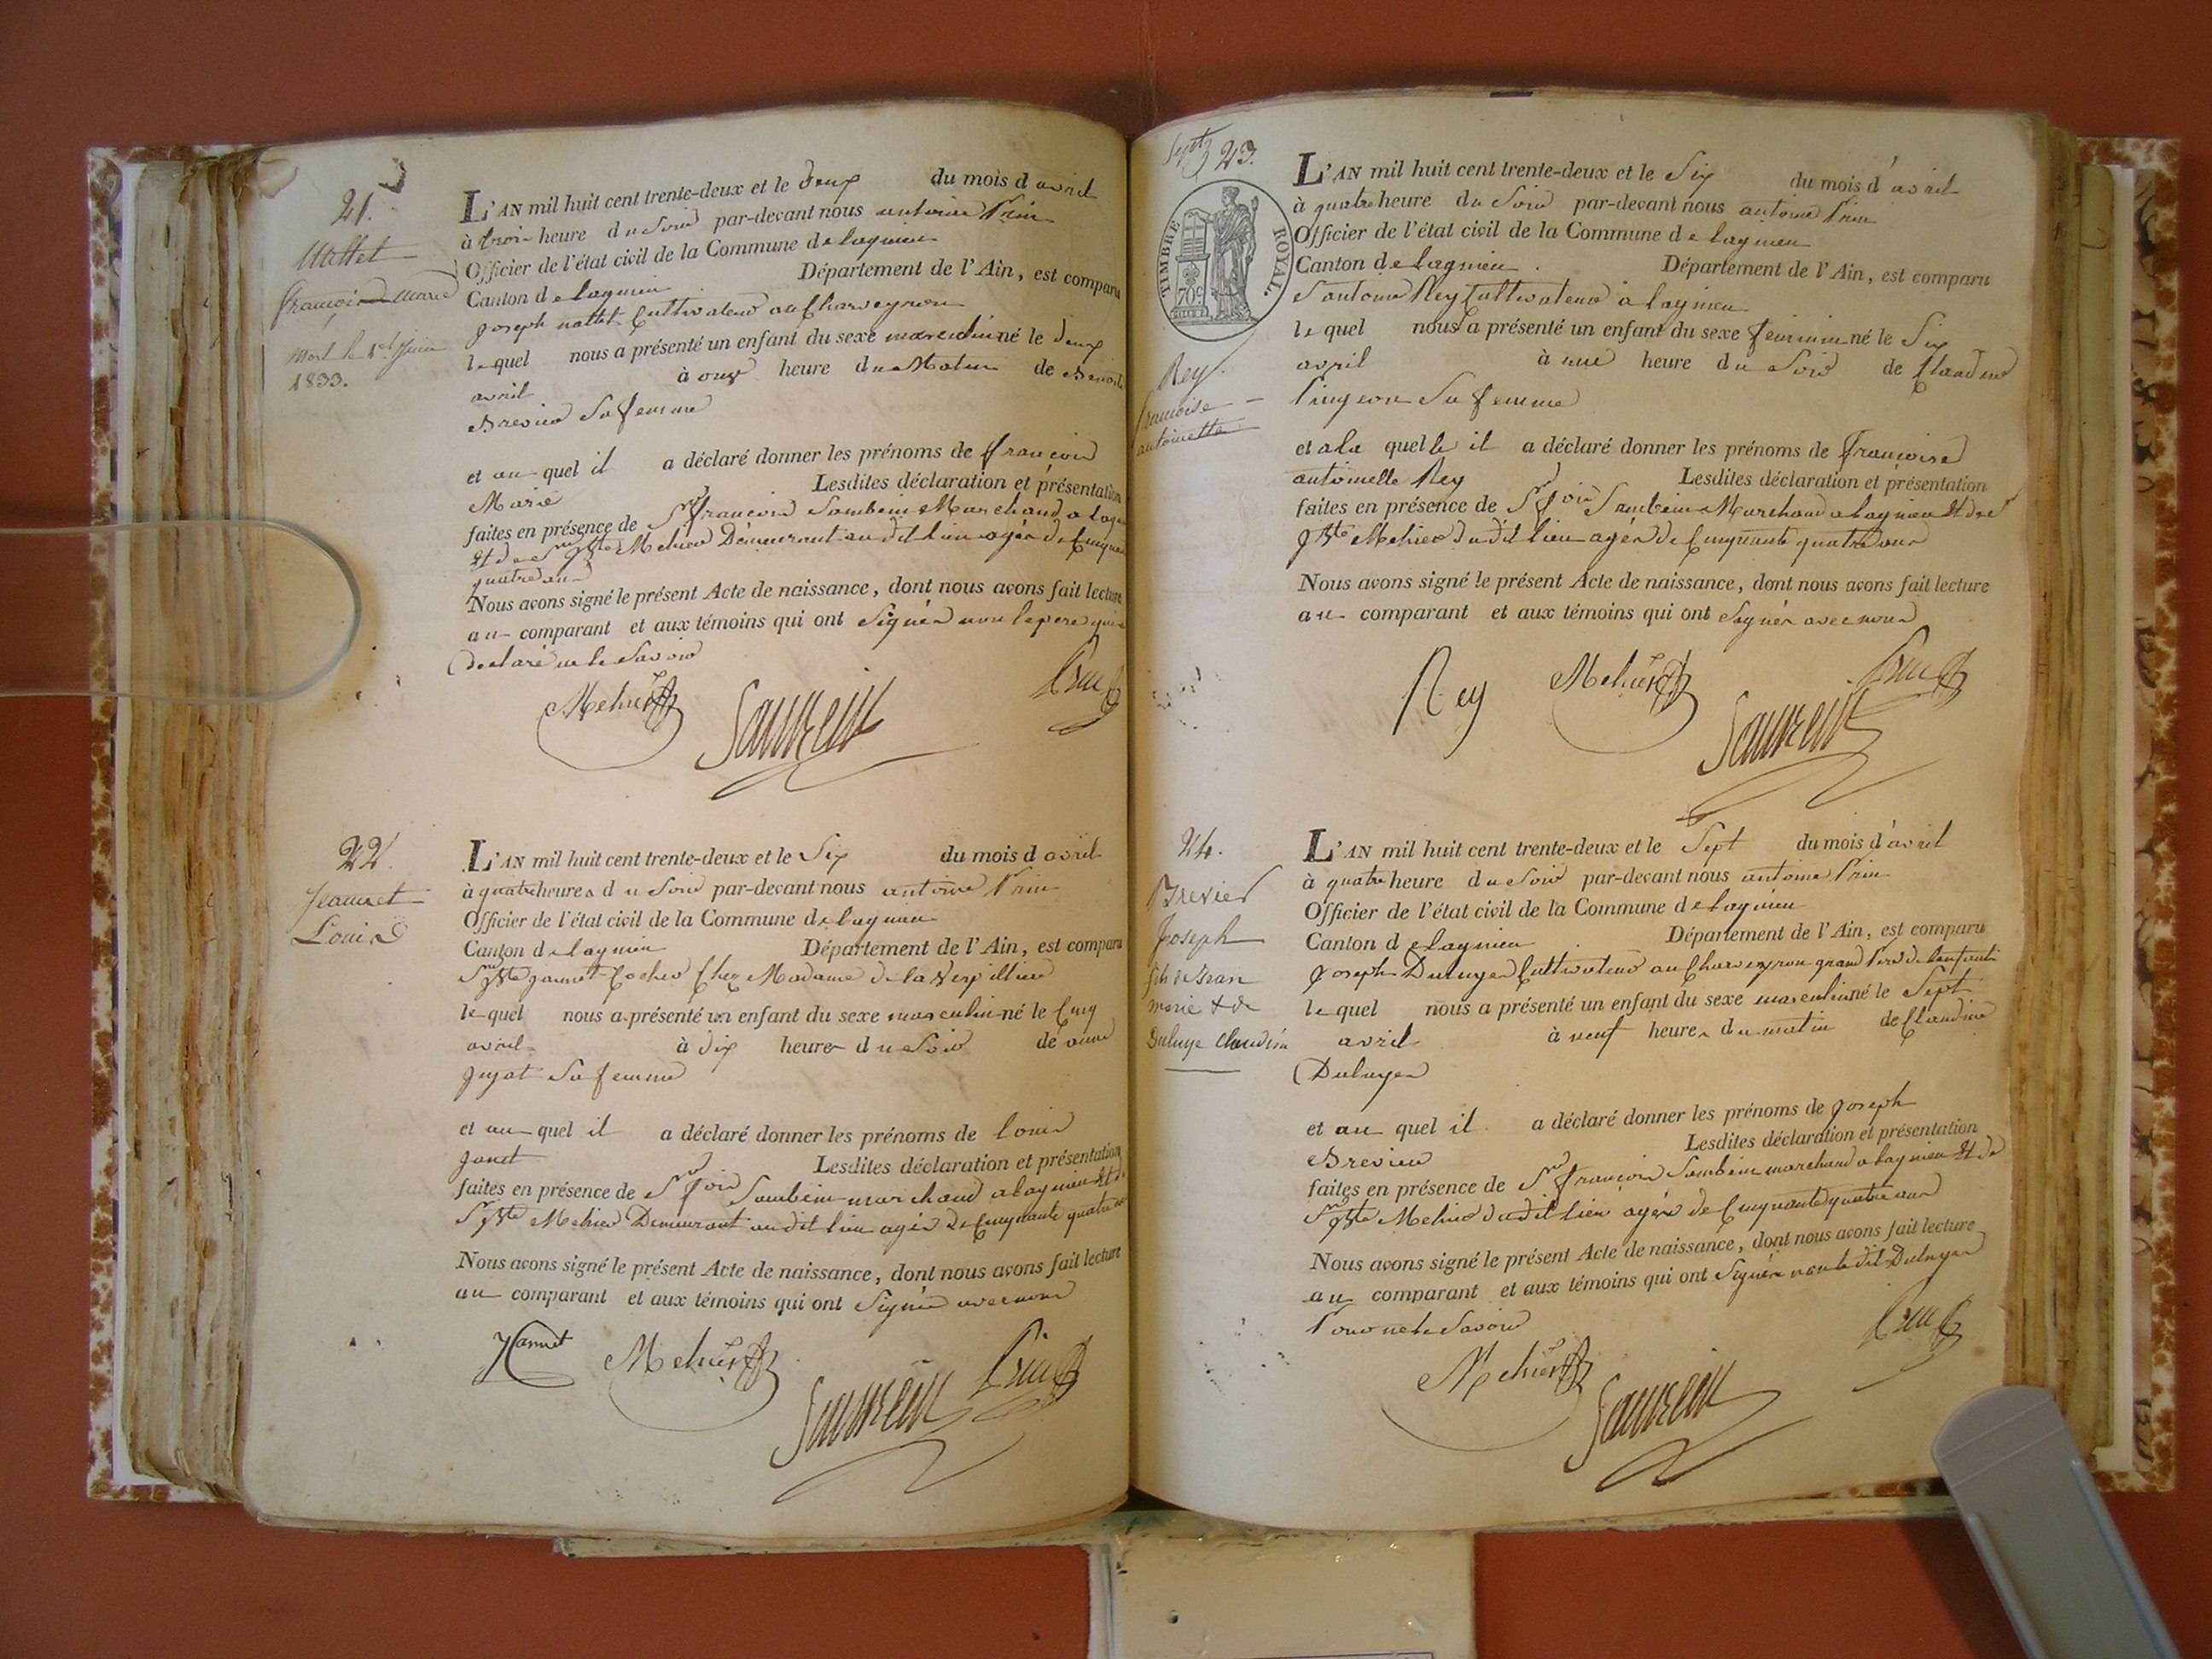 21.
Mallet
françois marie
mort le 1er Juin
1833.
L'AN mil huit cent trente-deux et le deux du mois d avril
à trois heure du soir par-devant nous antoine Prin
Officier de l'état civil de la Commune de lagnieu
Canton de lagnieu Département de l'Ain, est comparu
joseph Cultivateur au Charveyron
lequel nous a présenté un enfant du sexe masculin né le deux
avril à onze heure du Matin de Benoite
Brevier Sa femme
et au quel il a déclaré donner les prénoms de françois
Marie Lesdites déclaration et présentation
faites en présence de Sr françois Marchand a
Et de Sr jBte Mehier Demeurant au dit lieu agés de
quatre ans
Nous avons signé le présent Acte de naissance, dont nous avons fait lecture
au comparant et aux témoins qui ont Signés non le pere qui a
déclaré ne le Savoir
Mehier
Prin
22.
Jeannet
Louis
L'AN mil huit cent trente-deux et le Six du mois d avril
à quatre heures du Soir par-devant nous antoine Prin
Officier de l'état civil de la Commune de lagnieu
Canton de lagnieu Département de l'Ain, est comparu
Sr jBte Cocher Chez Madame de la Verpillière
lequel nous a présenté un enfant du sexe masculin né le Cinq
avril à dix heures du Soir de anne
Sa femme
et au quel il a déclaré donner les prénoms de louis
Lesdites déclaration et présentation
faites en présence de Sr fois marchand a lagnieu Et de
Sr jBte Mehier Demeurant au dit lieu agés de Cinquante quatre ans
Nous avons signé le présent Acte de naissance, dont nous avons fait lecture
au comparant et aux témoins qui ont Signés avec nous
Mehier
Prin
Sept 23.
TIMBRE ROYAL.
70c
Rey
francoise
antoinette
L'AN mil huit cent trente-deux et le Six du mois d'avril
à quatre heure du Soir par-devant nous antoine Prin
Officier de l'état civil de la Commune de lagnieu
Canton de lagnieu Département de l'Ain, est comparu
S antoine Rey Cultivateur à lagnieu
lequel nous a présenté un enfant du sexe feminin né le Six
avril à une heure du Soir de Claudine
Pingeon Sa femme
et a la quelle il a déclaré donner les prénoms de françoise
antoinette Rey Lesdites déclaration et présentation
faites en présence de Sr fois Marchand a lagnieu Et de Sr
jBte Mehier dudit lieu agés de Cinquante quatre ans
Nous avons signé le présent Acte de naissance, dont nous avons fait lecture
au comparant et aux témoins qui ont Signés avec nous
Rey
Mehier
Prin
24.
Brevier
Joseph
fils de Jean
marie & de
Duluye Claudine
L'AN mil huit cent trente-deux et le Sept du mois d'avril
à quatre heure du Soir par-devant nous antoine Prin
Officier de l'état civil de la Commune de lagnieu
Canton de lagnieu Département de l'Ain, est comparu
joseph Cultivateur au Charveyron grand Pere de lenfant
lequel nous a présenté un enfant du sexe masculin né le Sept
avril à neuf heures du matin de Claudine
et au quel il a déclaré donner les prénoms de joseph
Brevier Lesdites déclaration et présentation
faites en présence de Sr françois marchand a lagnieu Et de
Sr jBte Mehier dudit lieu agés de Cinquante quatre ans
Nous avons signé le présent Acte de naissance, dont nous avons fait lecture
au comparant et aux témoins qui ont Signés non le dit
Pour ne le Savoir
Mehier
Prin